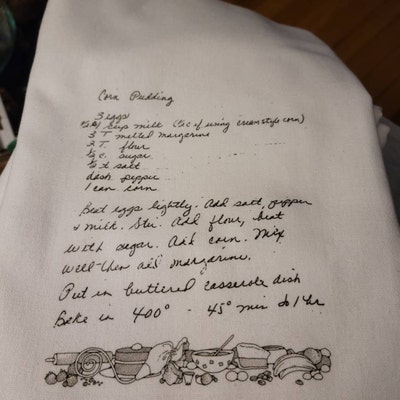 Corn Pudding
3 eggs
cup milk (½ c if using cream style corn)
3 T melted margarine
2 T. flour
½ c. sugar
½ t salt
dash pepper
1 can corn
Beat eggs lightly. Add salt, pepper
+ milk. Stir. Add flour, beat
with sugar. Add corn. Mix
well - then add margarine.
Put in buttered casserole dish
Bake in 400° - 45° min to 1 hr